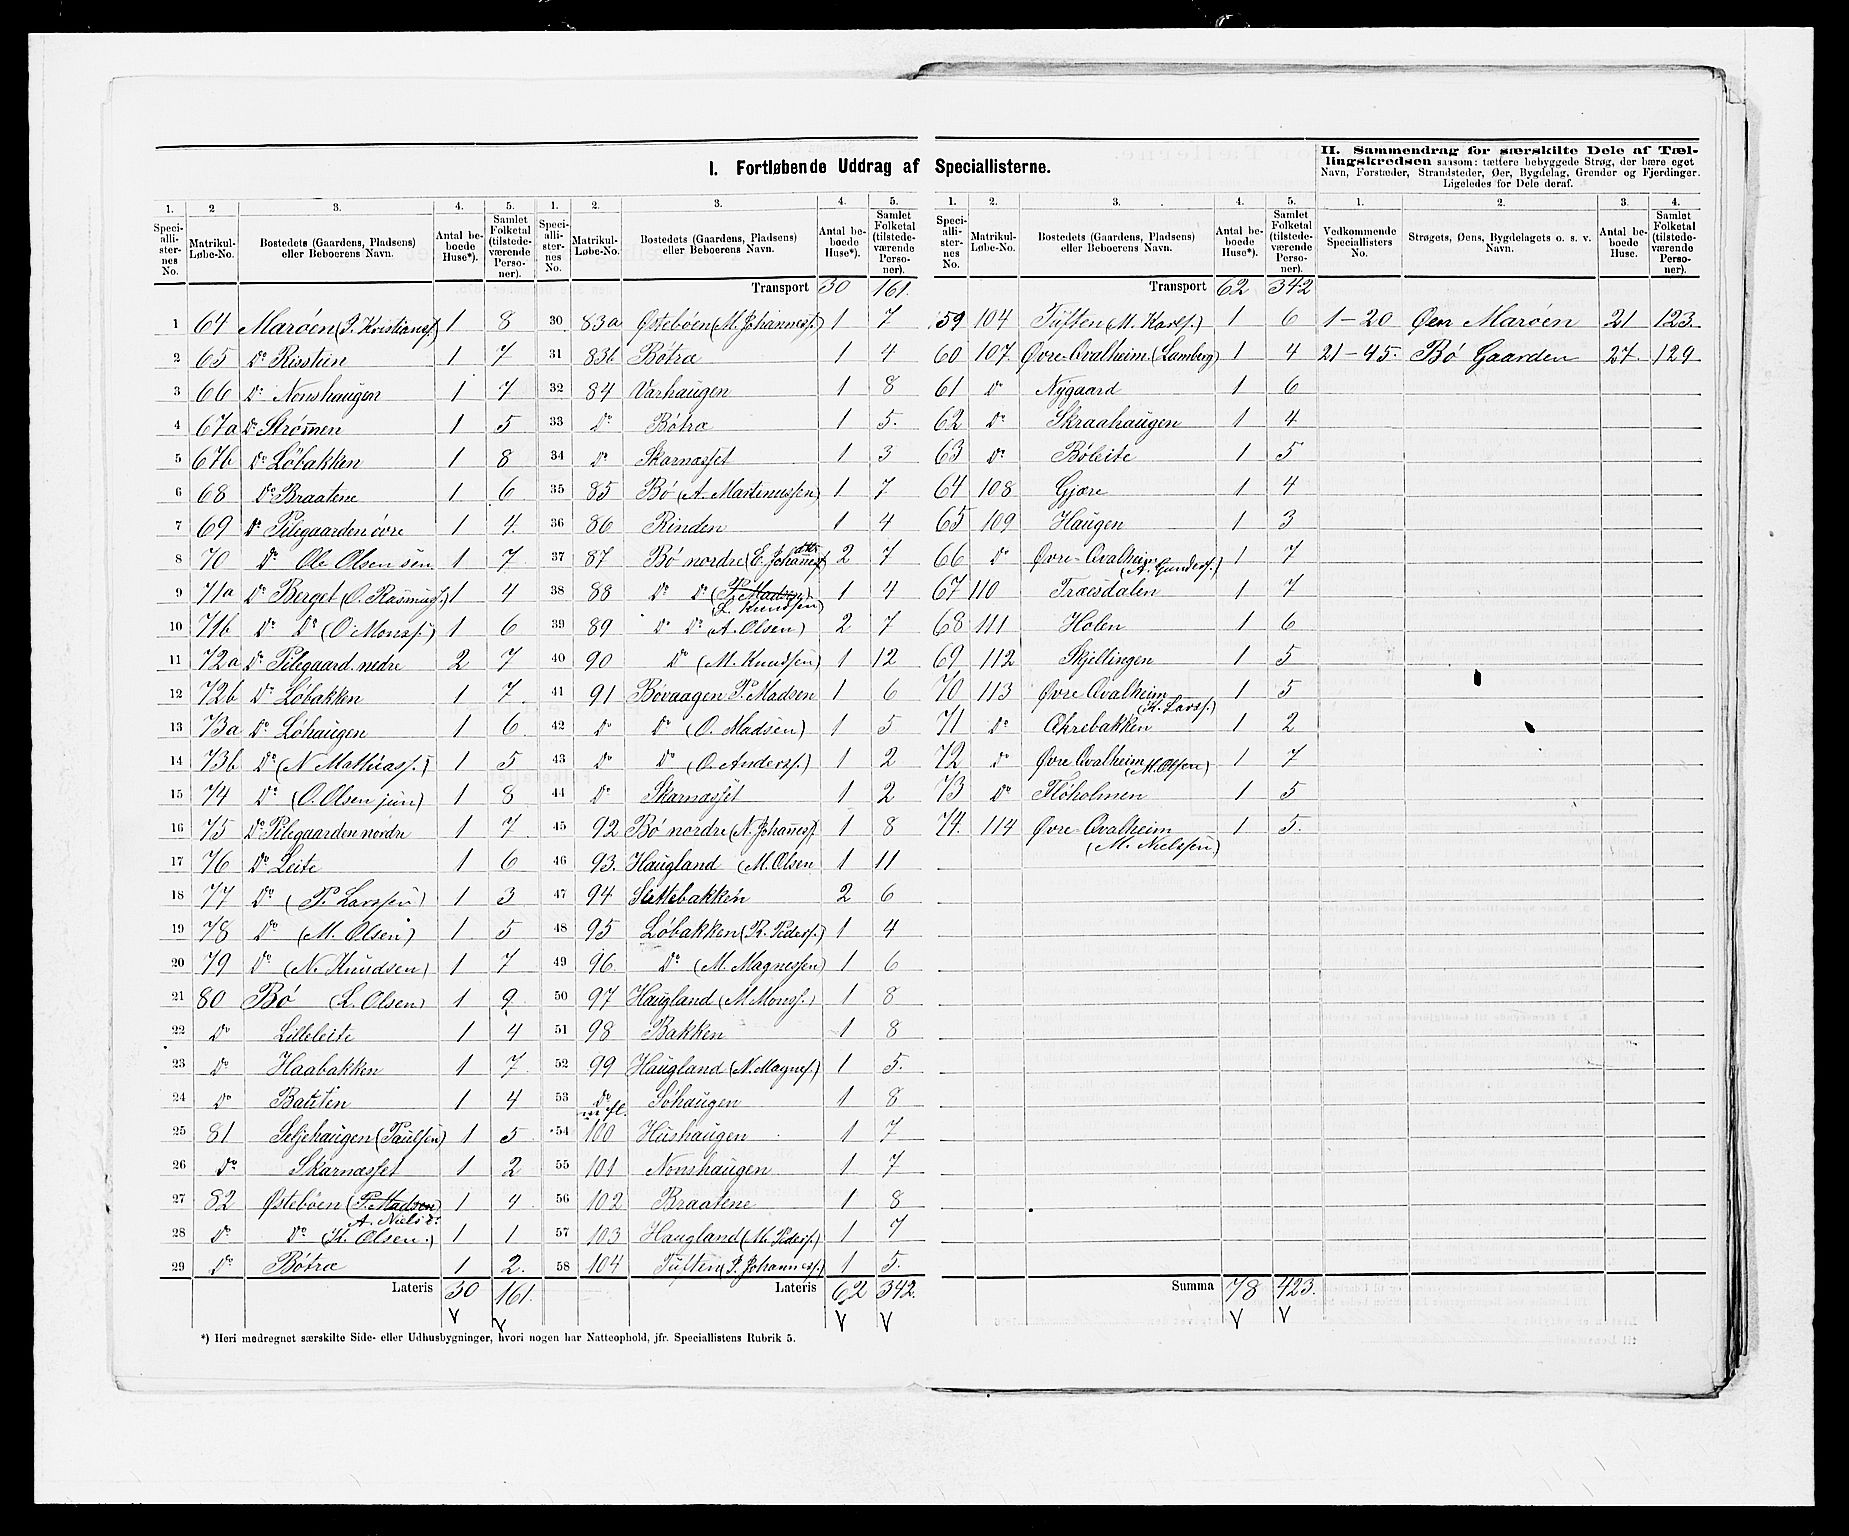 I. Fortløbende Uddrag af Speciallisterne.
II. Sammendrag for særskilte Dele af Tællingskredsen saasom: tættere bebyggede Strøg, der bære eget
Navn, Forstæder, Strandsteder, Øer, Bygdelag, Grender og Fjerdinger.
Ligeledes for Dele deraf.
1. 2 3. 4. 5. 1. 2. 3. 4. 5.
Speciallisternes No. Matrikul-Løbe-No. Bostedets (Gaardens, Pladsens) eller Beboerens Navn. Antal beboede Huse*). Samlet Folketal (tilstedeværende Personer).
Speciallisternes No. Matrikul-Løbe-No. Bostedets (Gaardens, Pladsens) eller Beboerens Navn. Antal beboede Huse*). Samlet Folketal (tilstedeværende Personer).
1 64 Marøen (P. Kristiansf.) 1 8
2 65 Do Risstien 1 7
3 66 Do Nonshaugen 1 7
4 67a Do Strømen 1 5
5 67b Do Løbakken 1 8
6 68 Do Braatene 1 6
7 69 Do Pilegaarden øvre 1 4.
8 70 Do Ole Olsen sen 1 7
9 71a Do Berget (O. Rasmusf.) 1 4
10 71b Do Do (O. Monsf.) 1 6
11 72a Do Pilegaard. nedre 2 7
12 72b Do Løbakken 1 7.
13 73a Do Løhaugen 1 6
14 73b Do (N Mathiasf.) 1 5
15 74 Do (O. Olsen jun) 1 8
16 75 Do Pilegaarden nordre 1 7
17 76 Do Leite 1 6
18 77 Do (P. Larssen) 1 3
19 78 Do (M. Olsen) 1 5
20 79 Do (N. Knudsen) 1 7
21 80 Bø (L. Olsen) 1 9.
22 Do Lilleleite 1 4
23 Do Haabakken 1 7
24 Do Bakken 1 4
25 81 Seljehaugen (Paulsen) 1 5
26 Do Skarnæsset 1 2
27 82 Østebøen (P. Madsen) A. Niels 1 4
28 Do Do (K. Olsen.) 1 1
29 Do Bøtræ 1 2.
Lateris 30 161.
Transport 30 161.
30 83a Østebøen (M. Johannesf.) 1 7
31 83b Bøtræ 1 4
32 84 Varhaugen 1 8
33 Do Bøtræ 1 5.
34 Do Skarnæsset 1 3
35 85 Bø (A. Martinussen) 1 7
36 86 Rinden 1 4
37 87 Bø nordre (E. Johannes dtr 2 7
38 88 Do Do (P. Madsen) L. Knudsen 1 4
39 89 Do Do (A. Olsen) 2 7
40 90 Do (M. Knudsen) 1 12
41 91 Bøvaagen P. Madsen 1 6
42 Do Do (O. Madsen) 1 5
43 Do Do (O. Andersf.) 1 2
44 Do Skarnæsset 1 2
45 92 Bø nordre (N. Johannesf. 1 8
46 93. Haugland (M. Olsen 1 11
47 94 Slettebakken 2 6
48 95 Løbakken (R. Pedersf.) 1 4
49 96. Do (M. Magnessen) 1 6
50 97 Haugland (M. Monsf.) 1 8
51 98 Bakken 1 8
52 99 Haugland (N. Magnesf.) 1 5.
53 Do m fl. Søhaugen 1 8
54 100 Hushaugen 1 7
55 101 Nonshaugen 1 7
56 102 Braatene 1 8
57 103 Haugland (M. Pedersf.) 1 7
58 104 Tuften (P. Johannesf.) 1 5.
Lateris 62 342.
*) Heri medregnet særskilte Side- eller Udhusbygninger, hvori nogen har Natteophold, jfr. Speciallistens Rubrik 5.
1. 2. 3. 4. 5. 1. 2. 3. 4.
Speciallisternes No. Matrikul-Løbe-No. Bostedets (Gaardens, Pladsens) eller Beboerens Navn. Antal beboede Huse*). Samlet Folketal (tilstedeværende Personer).
Vedkommende Speciallisters No. Strøgets, Øens, Bygdelagets o. s. v. Navn. Antal beboede Huse. Samlet Folketal (tilstedeværende Personer).
Transport 62 342
59 104 Tuften (M. Karlsf.) 1 6
60 107. Øvre-Qvalheim (Lamberg) 1 4
61 Do Nygaard 1 6
62 Do Skraahaugen 1 4
63 Do Bøleite 1 5
64 108 Gjøre 1 4
65 109 Haugen 1 3
66 Do Øvre-Qvalheim (A. Gundersf.) 1 7
67 110 Troesdalen 1 7
68 111 Holen 1 6
69 112 Skjellingen 1 5
70 113 Øvre Qvalheim (H. Larsf.) 1 5
71 Do Ækrebakken 1 2
72 Do Øvre Qvalheim (M. Olsen) 1 7
73 Do Fløholmen 1 5
74. 114 Øvre-Qvalheim (M. Nielssen) 1 5.
Summa 78 423.
1-20 Øen Marøen 21 123.
21-45. Bø Gaarden 27. 129